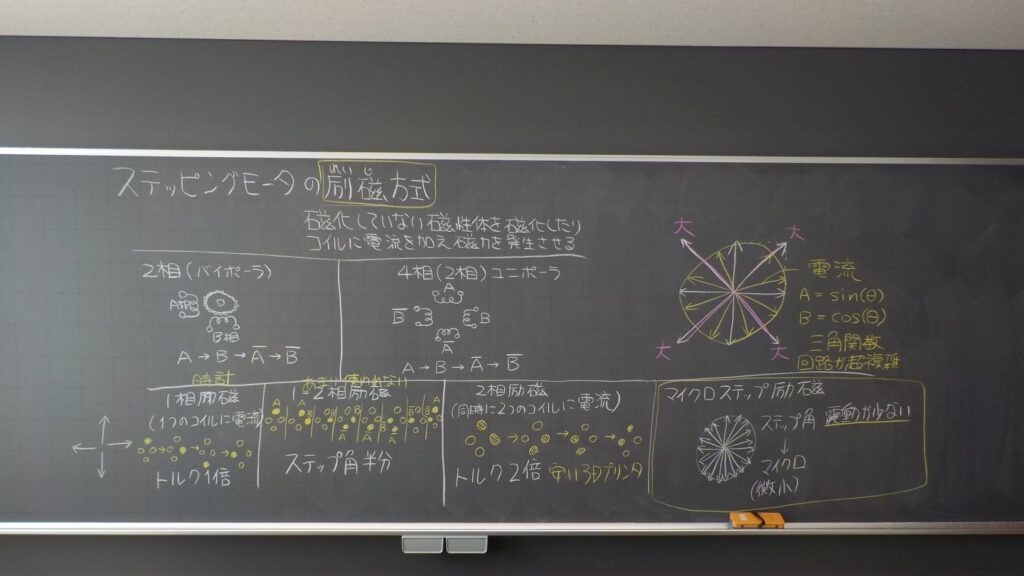 れいじ
ステッピングモータの励磁方式
磁化していない磁性体を磁化したり
コイルに電流を加え磁力を発生させる
2相(バイポーラ)
A相
B相
A→B→A̅→B̅
4相(2相)ユニポーラ
A
B̅
B
A̅
A→B→A̅→B̅
大
大
大
大
電流
A=sin(θ)
B=cos(θ)
三角関数
回路が超複雑
時計
1相励磁
(1つのコイルに電流)
トルク1倍
あまり使われない
1-2相励磁
ステップ角半分
2相励磁
(同時に2つのコイルに電流)
トルク2倍 安い3Dプリンタ
マイクロステップ励磁
ステップ角 震動が少ない
↓
マイクロ
(微小)